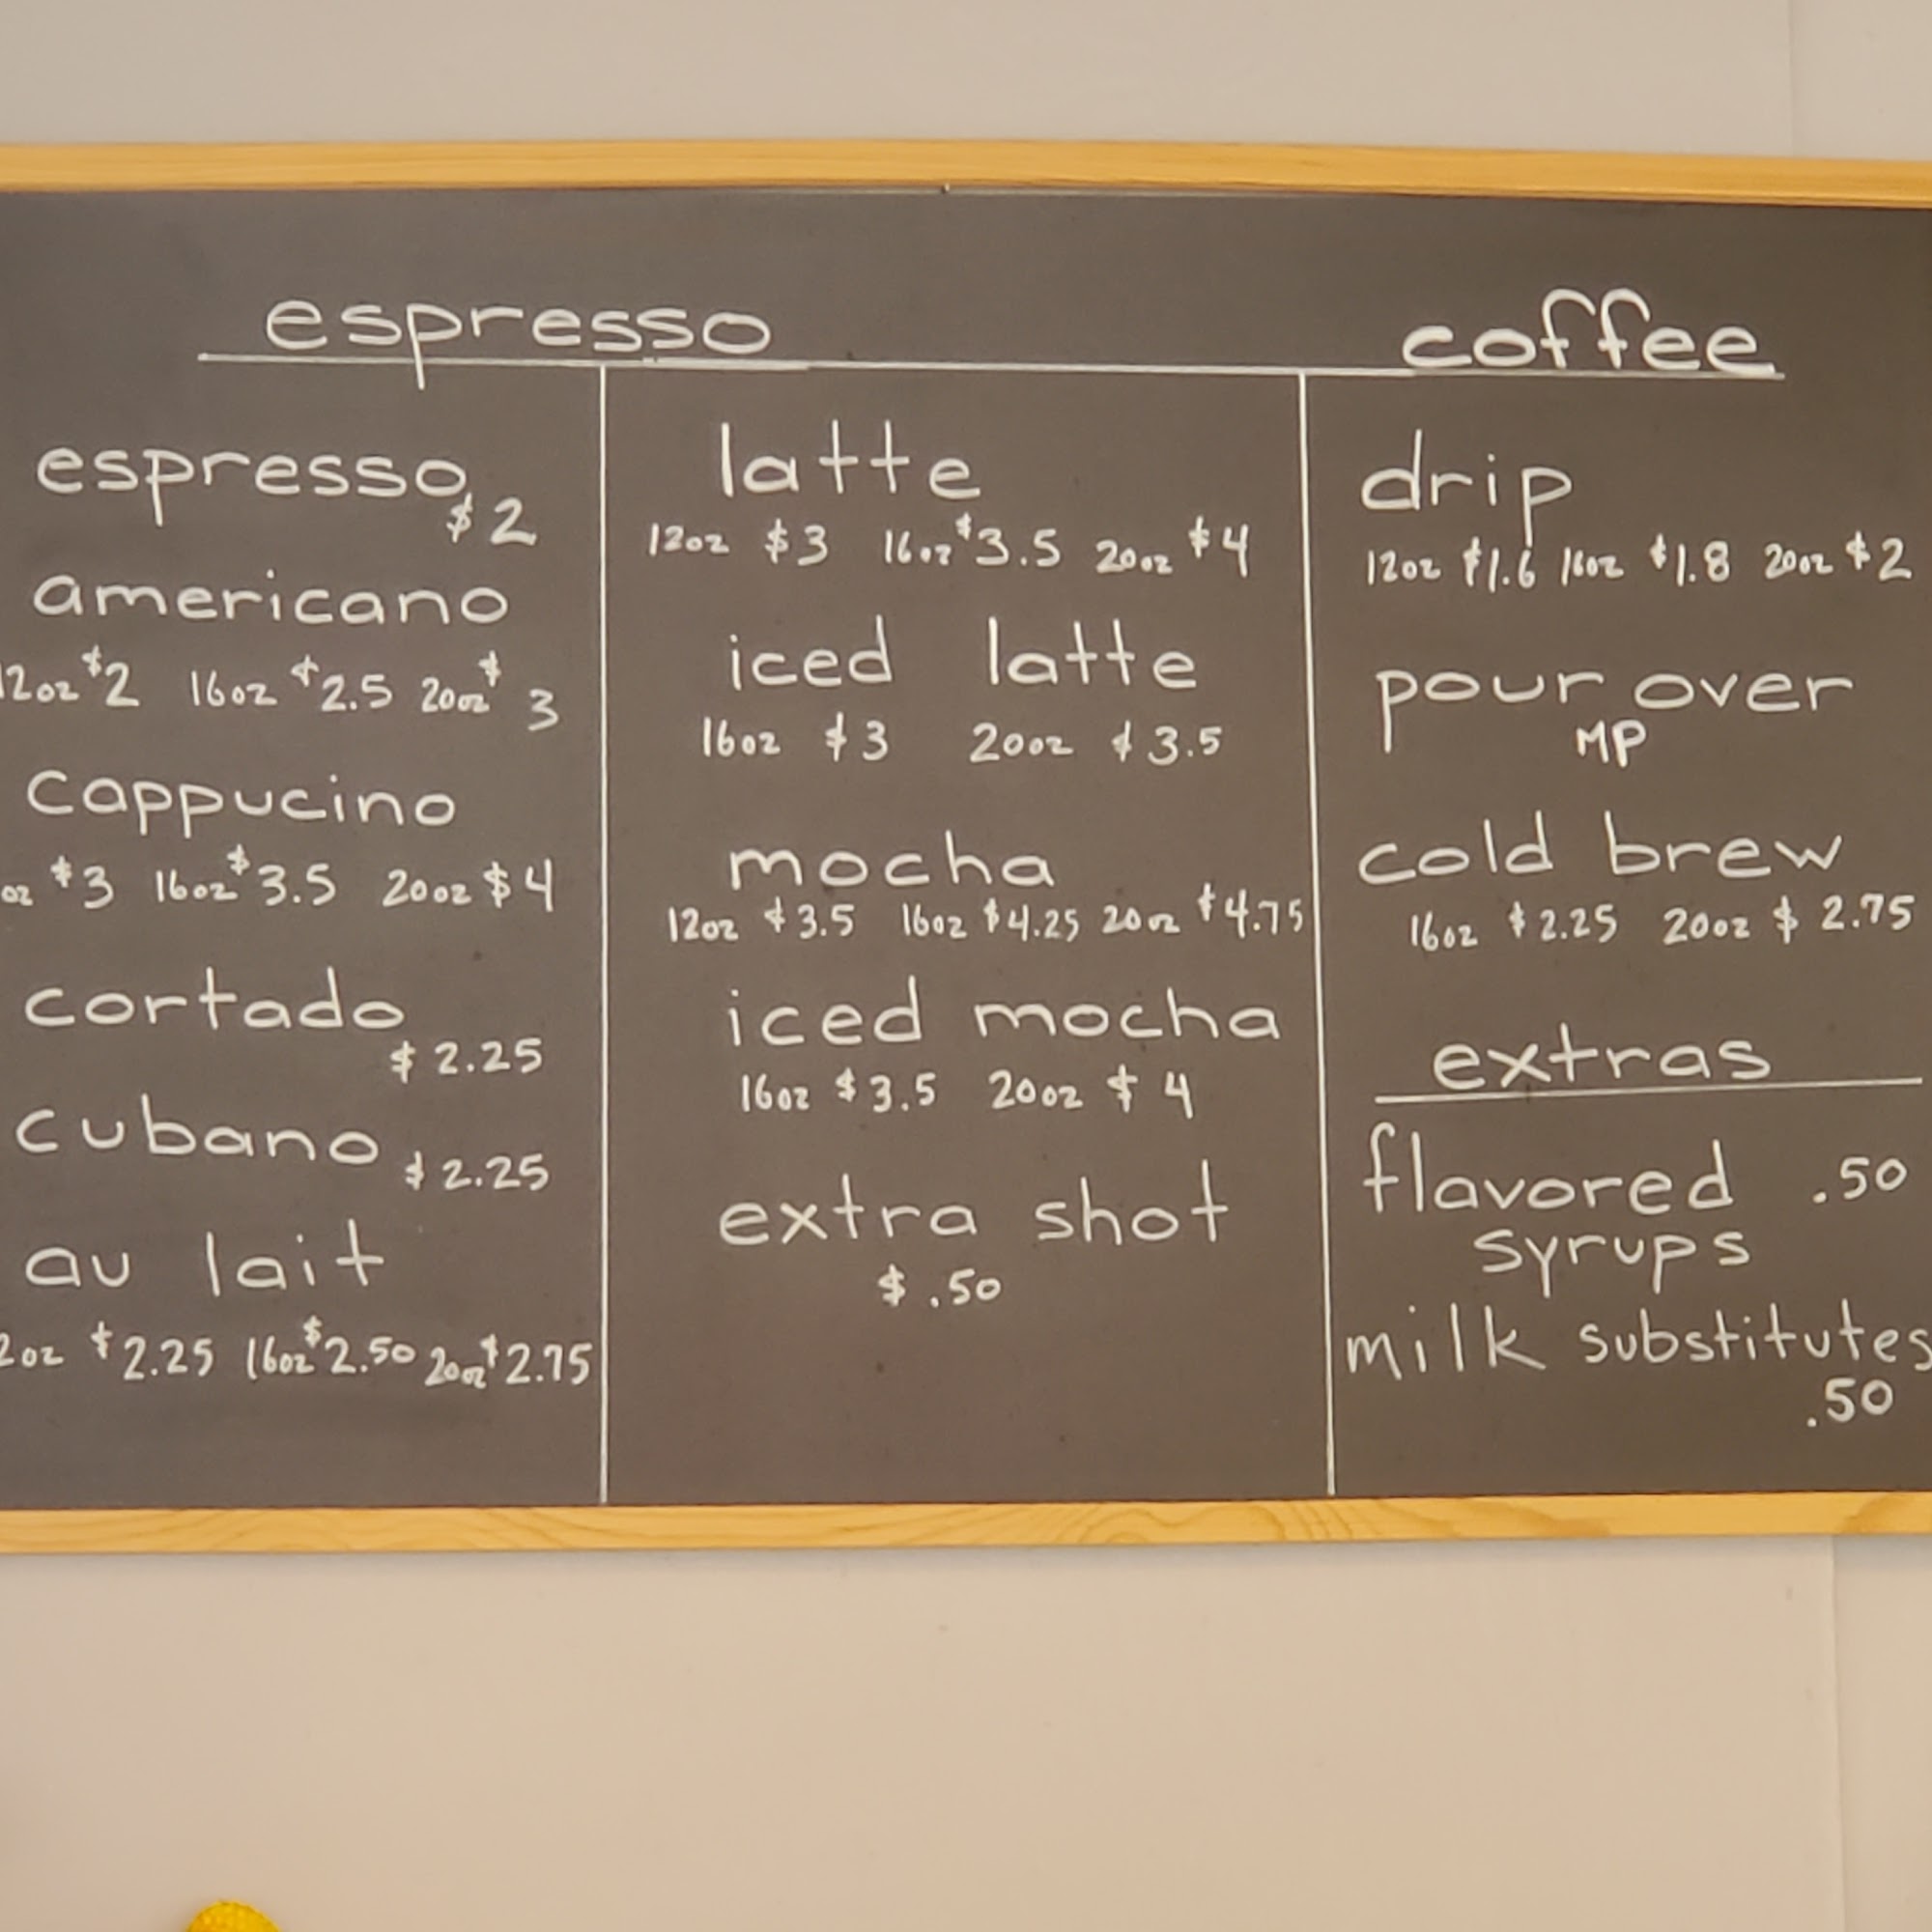 espresso
espresso
$2
americano
12oz $2 16oz $2.5 20oz $3
cappucino
oz $3 16oz $3.5 20oz $4
cortado
$2.25
cubano $2.25
au lait
2oz $2.25 16oz $2.50 20oz $2.75
latte
12oz $3 16oz $3.5 20oz $4
iced latte
16oz $3 20oz $3.5
mocha
12oz $3.5 16oz $4.25 20oz $4.75
iced mocha
16oz $3.5 20oz $4
extra shot
$.50
coffee
drip
12oz $1.6 16oz $1.8 20oz $2
pour over
MP
cold brew
16oz $2.25 20oz $2.75
extras
flavored .50
syrups
milk substitutes
.50